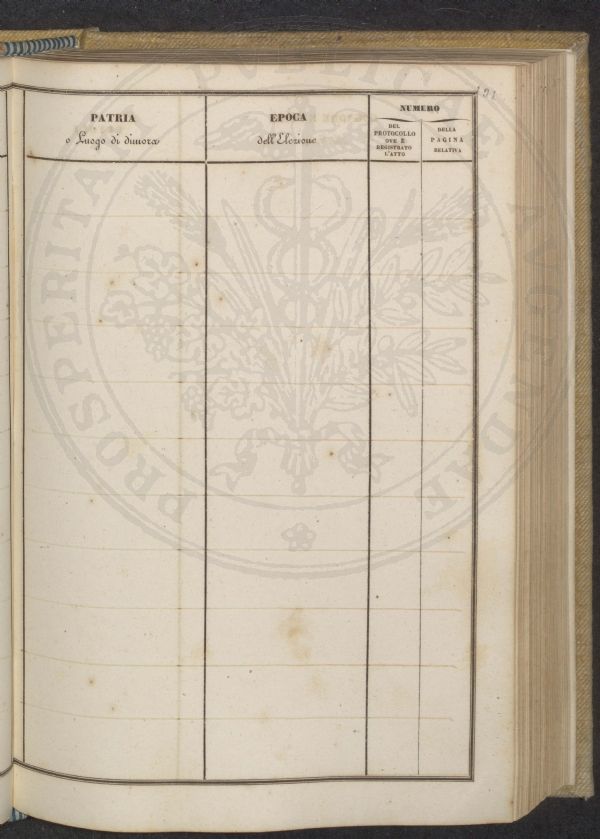 121
PATRIA
o Luogo di dimora
EPOCA
dell'Elezione
NUMERO
DEL
PROTOCOLLO
OVE È
REGISTRATO
L'ATTO
DELLA
PAGINA
RELATIVA
PROSPERITATI PUBLICAE AVGENDAE